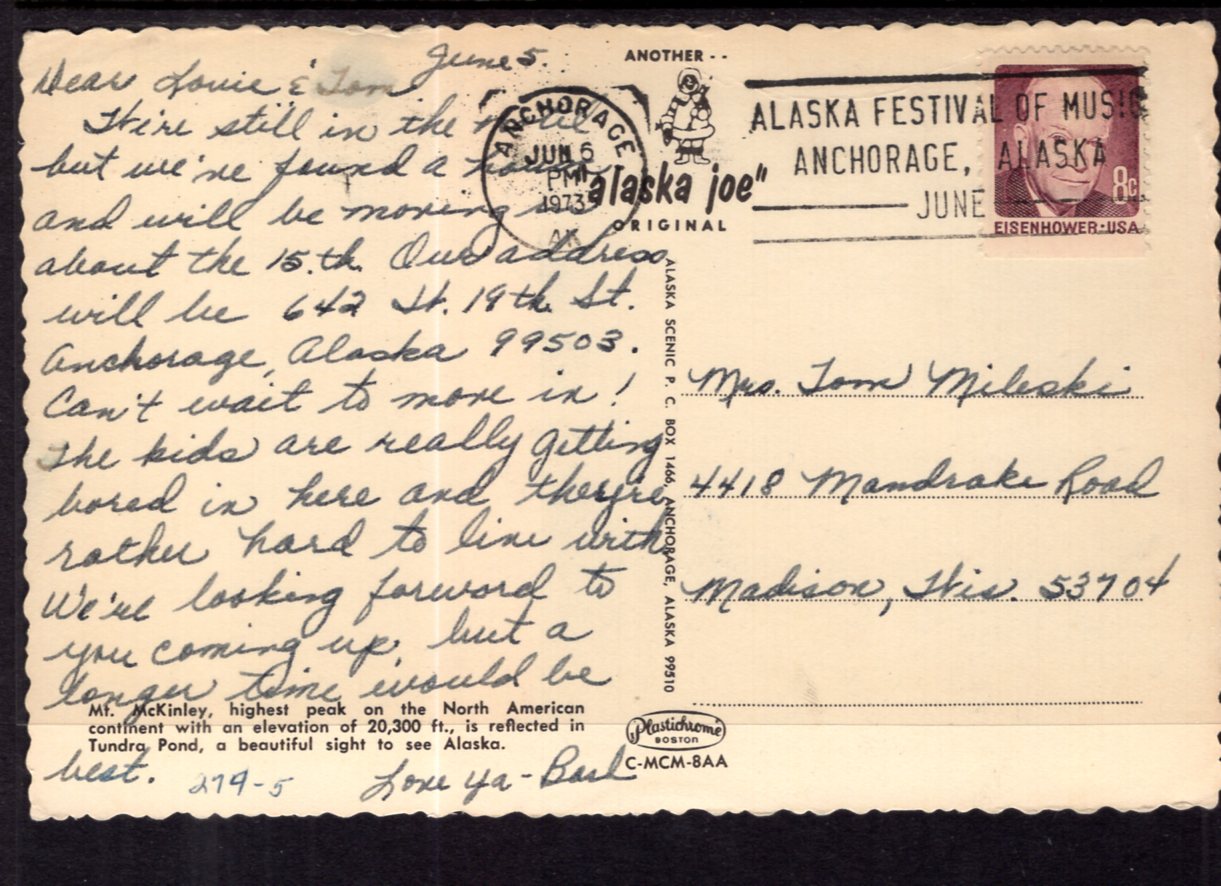 June 5.
Dear Louie & Tom
We're still in the motel
but we've found a house
and will be moving in
about the 15.th. Our address
will be 642 W. 19th St.
Anchorage, Alaska 99503.
Can't wait to move in!
The kids are really getting
bored in here and they're
rather hard to live with
We're looking forward to
you coming up, but a
longer time would be
best.
Love ya - Barb
279-5
Mt. McKinley, highest peak on the North American
continent with an elevation of 20,300 ft., is reflected in
Tundra Pond, a beautiful sight to see Alaska.
ANOTHER - -
"alaska joe"
ORIGINAL
ANCHORAGE
JUN 6
PM
1973
AK
ALASKA FESTIVAL OF MUSIC
ANCHORAGE, ALASKA
JUNE
8c
EISENHOWER·USA
ALASKA SCENIC P. C. BOX 1466, ANCHORAGE, ALASKA 99510
Mrs. Tom Mileski
4418 Mandrake Road
Madison, Wis. 53704
Plastichrome
BOSTON
C-MCM-8AA